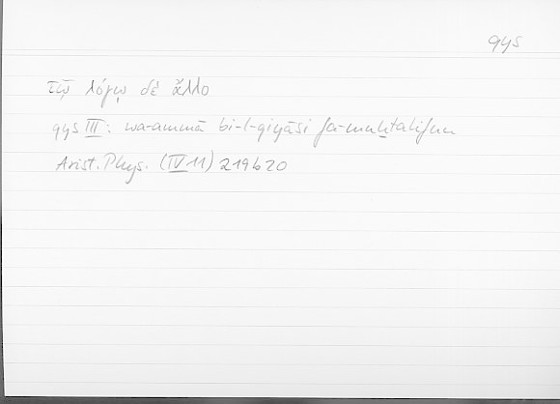 qys
τῷ λόγῳ δὲ ἄλλο
qys III: wa-ammā bi-l-qiyāsi fa-muḫtalifun
Arist. Phys. (IV 11) 219b20